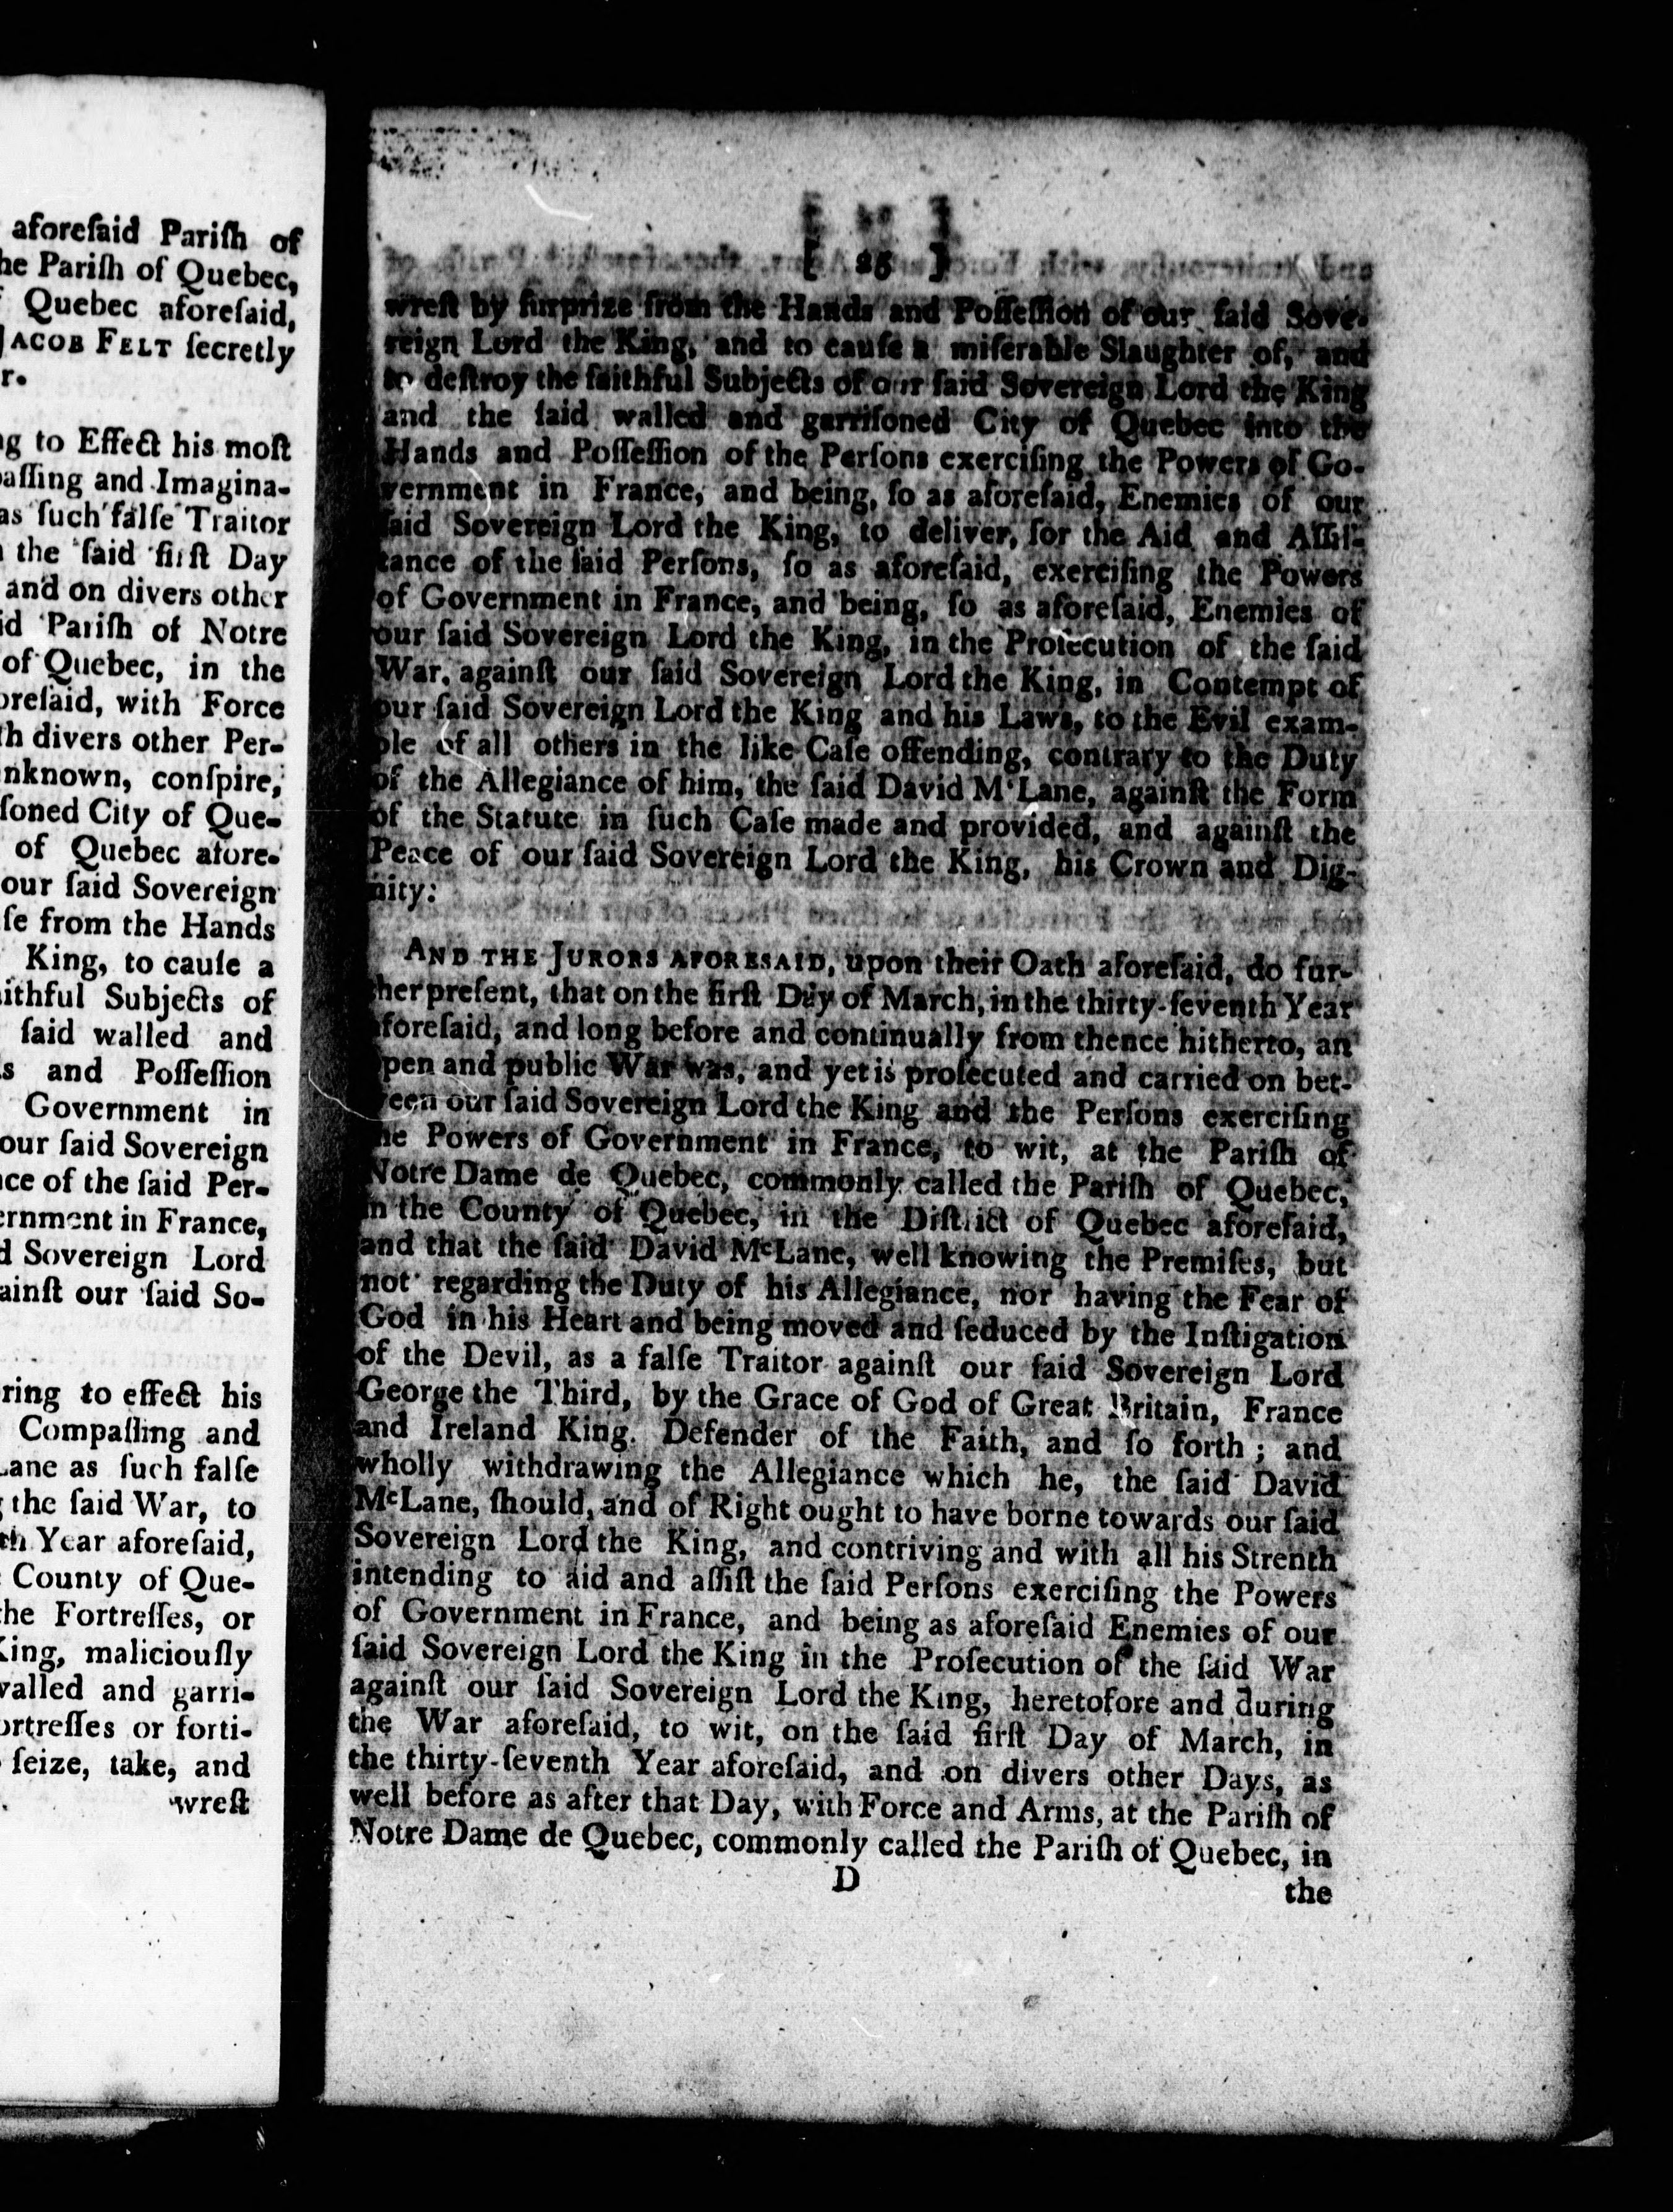 aforeſaid Pariſh of
he Pariſh of Quebec,
Quebec aforeſaid,
JACOB FELT ſecretly
r.
g to Effect his moſt
aſſing and Imagina-
as ſuch falſe Traitor
the ſaid firſt Day
and on divers other
id Pariſh of Notre
of Quebec, in the
oreſaid, with Force
th divers other Per-
nknown, conſpire,
ſoned City of Que-
of Quebec afore-
our ſaid Sovereign
ſe from the Hands
King, to cauſe a
ithful Subjects of
ſaid walled and
s and Poſſeſſion
Government in
our ſaid Sovereign
ce of the ſaid Per-
ernment in France,
d Sovereign Lord
ainſt our ſaid So-
ring to effect his
Compaſſing and
Lane as ſuch falſe
the ſaid War, to
th Year aforeſaid,
County of Que-
he Fortreſſes, or
King, maliciouſly
valled and garri-
ortreſſes or forti-
ſeize, take, and
wreſt
[ 25 ]
wreſt by ſurprize from the Hands and Poſſeſſion of our ſaid Sove-
reign Lord the King, and to cauſe a miſerable Slaughter of, and
to deſtroy the faithful Subjects of our ſaid Sovereign Lord the King
and the ſaid walled and garriſoned City of Quebec into the
Hands and Poſſeſſion of the Perſons exerciſing the Powers of Go-
vernment in France, and being, ſo as aforeſaid, Enemies of our
ſaid Sovereign Lord the King, to deliver, for the Aid and Aſſiſ-
tance of the ſaid Perſons, ſo as aforeſaid, exerciſing the Powers
of Government in France, and being, ſo as aforeſaid, Enemies of
our ſaid Sovereign Lord the King, in the Proſecution of the ſaid
War, againſt our ſaid Sovereign Lord the King, in Contempt of
our ſaid Sovereign Lord the King and his Laws, to the Evil exam-
ple of all others in the like Caſe offending, contrary to the Duty
of the Allegiance of him, the ſaid David McLane, againſt the Form
of the Statute in ſuch Caſe made and provided, and againſt the
Peace of our ſaid Sovereign Lord the King, his Crown and Dig-
nity:
AND THE JURORS AFORESAID, upon their Oath aforeſaid, do fur-
ther preſent, that on the firſt Day of March, in the thirty-ſeventh Year
aforeſaid, and long before and continually from thence hitherto, an
open and public War was, and yet is proſecuted and carried on bet-
ween our ſaid Sovereign Lord the King and the Perſons exerciſing
the Powers of Government in France, to wit, at the Pariſh of
Notre Dame de Quebec, commonly called the Pariſh of Quebec,
in the County of Quebec, in the Diſtrict of Quebec aforeſaid,
and that the ſaid David McLane, well knowing the Premiſes, but
not regarding the Duty of his Allegiance, nor having the Fear of
God in his Heart and being moved and ſeduced by the Inſtigation
of the Devil, as a falſe Traitor againſt our ſaid Sovereign Lord
George the Third, by the Grace of God of Great Britain, France
and Ireland King. Defender of the Faith, and ſo forth; and
wholly withdrawing the Allegiance which he, the ſaid David
McLane, ſhould, and of Right ought to have borne towards our ſaid
Sovereign Lord the King, and contriving and with all his Strenth
intending to aid and aſſiſt the ſaid Perſons exerciſing the Powers
of Government in France, and being as aforeſaid Enemies of our
ſaid Sovereign Lord the King in the Proſecution of the ſaid War
againſt our ſaid Sovereign Lord the King, heretofore and during
the War aforeſaid, to wit, on the ſaid firſt Day of March, in
the thirty-ſeventh Year aforeſaid, and on divers other Days, as
well before as after that Day, with Force and Arms, at the Pariſh of
Notre Dame de Quebec, commonly called the Pariſh of Quebec, in
D
the